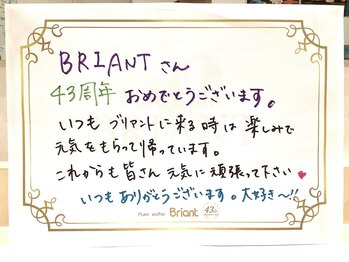 BRIANTさん
43周年 おめでとうございます。
いつも ブリアントに来る時は 楽しみで
元気をもらって帰っています。
これからも 皆さん 元気に 頑張って下さい♥
いつも ありがとうございます。大好き〜!!
Briant 43